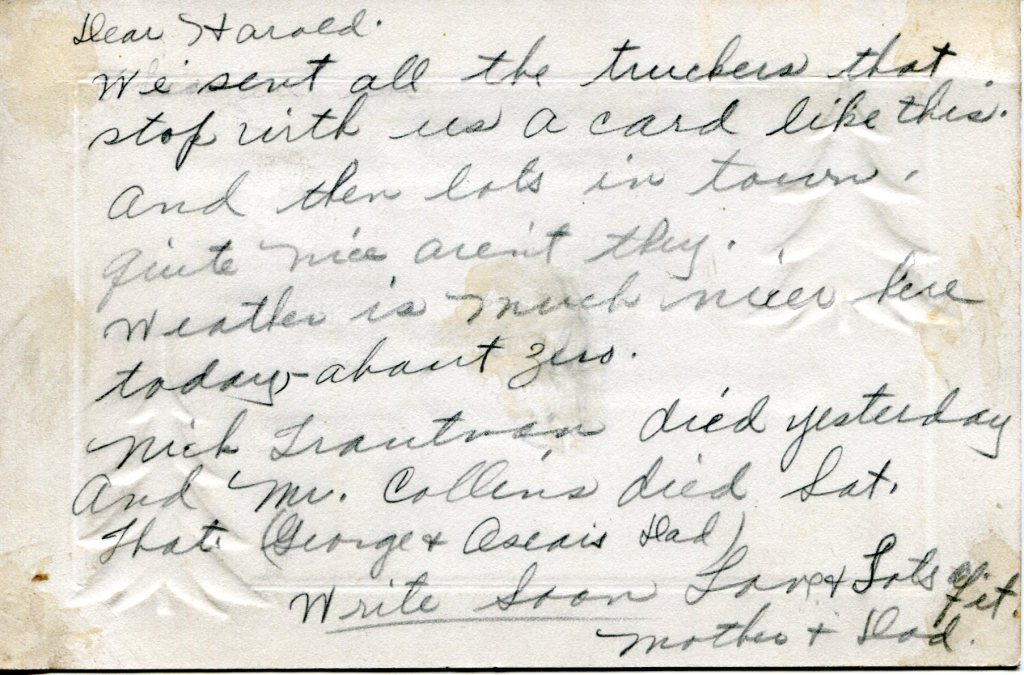 Dear Harold.
We sent all the truckers that
stop with us a card like this.
And then lots in town.
Quite nice aren't they.
Weather is much nicer here
today, - about zero.
Nick Trautman died yesterday
And Mr. Collins died Sat.
That. (George + Oscar's Dad)
Write Soon Love + Lots
Mother + Dad.